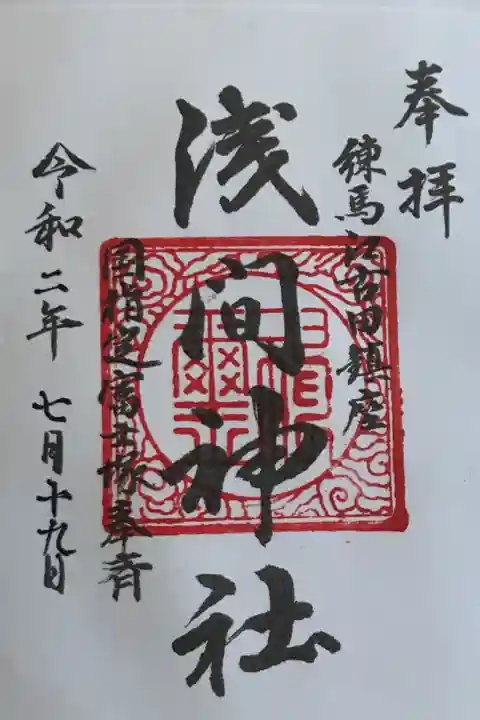 奉拝
練馬江古田鎮座
浅間神社
国指定富士塚奉斉
令和二年 七月十九日